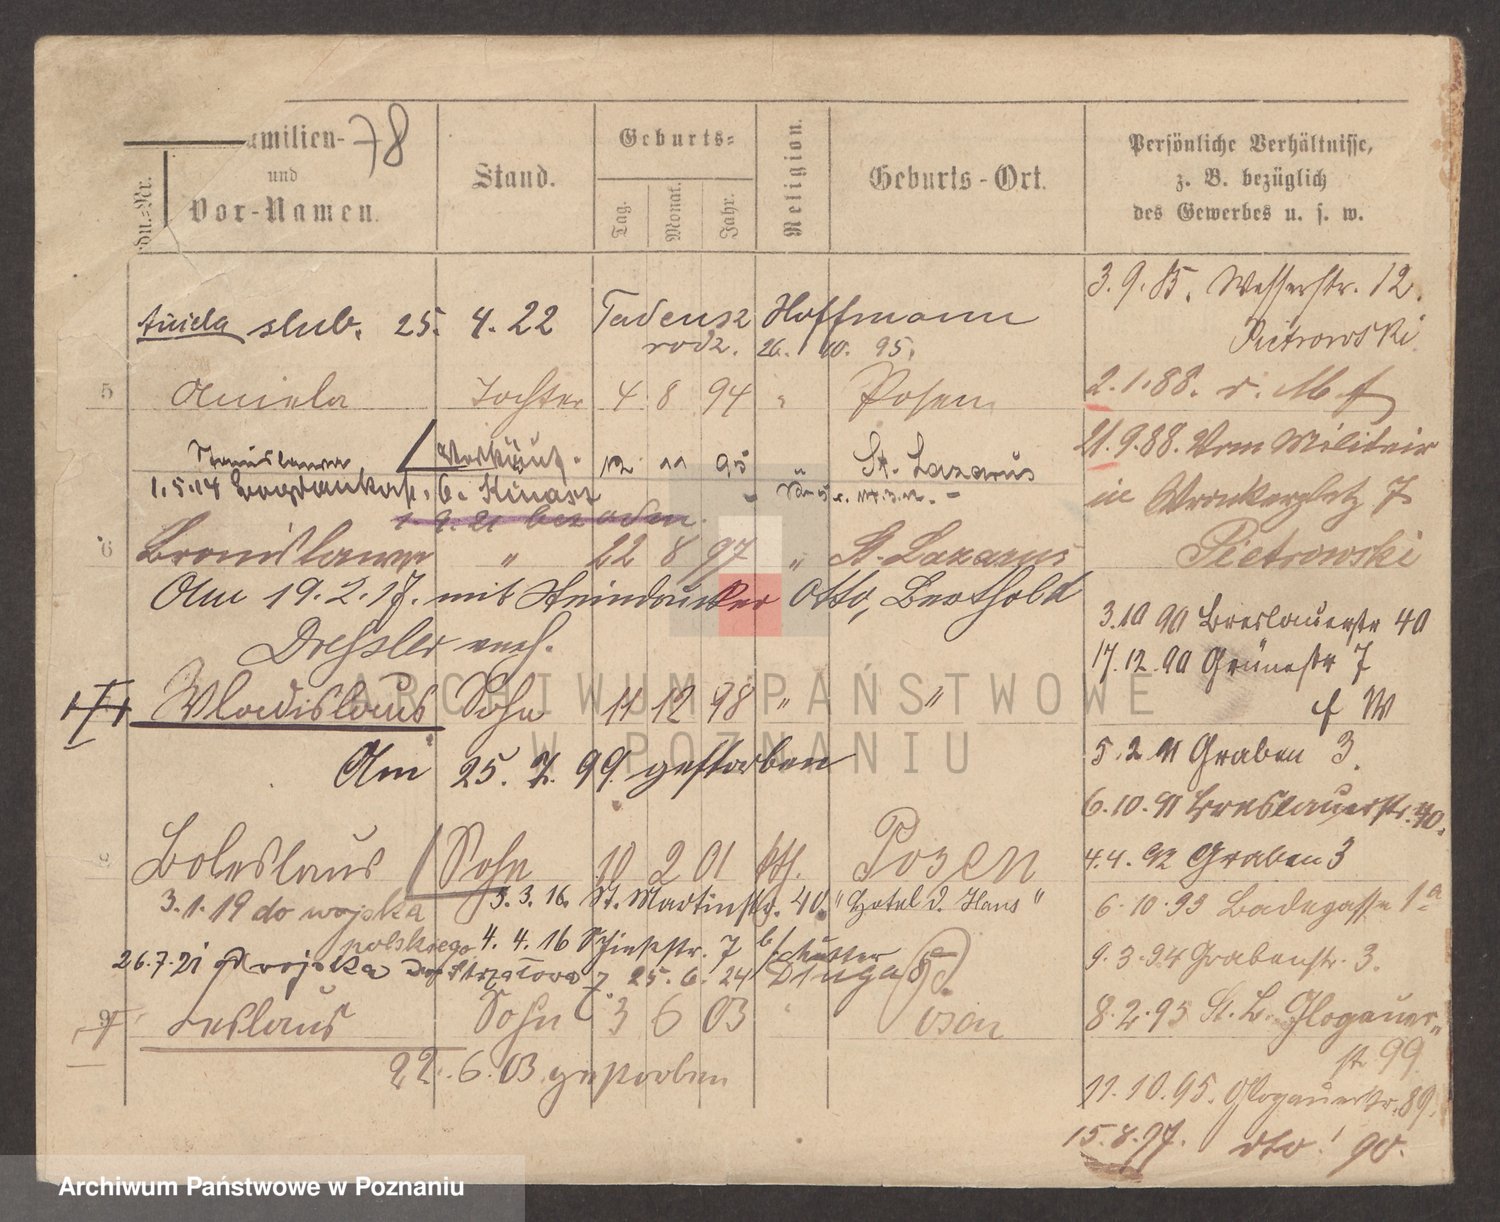 78
Familien-
und
Vor-Namen.
Ordn.-Nr.
Stand.
Geburts-
Tag.
Monat.
Jahr.
Religion.
Geburts-Ort.
Persönliche Verhältnisse,
z. B. bezüglich
des Gewerbes u. s. w.
Aniela slub. 25. 4. 22 Tadeusz Hoffmann
rodz. 26. 10. 95.
5 Aniela Tochter 4 8 94 " Posen
Stanislawa Verkäuf. 12 11 95 " St. Lazarus
1.5.14
1.9.21
6 Bronislawa " 22 8 97 " St. Lazarus
Am 19.2.17. mit Steindrucker Otto, Berthold
Dressler verh.
Wladislaus Sohn 11 12 98 " "
Am 25. 7. 99 gestorben
8 Boleslaus Sohn 10 2 01 kth. Posen
3.1.19 do wojska
polskiego
3.3.16. St. Martinstr. 40. "Hotel d. Hans"
4.4.16 Schiesstr. 7 b/ Mutter
26.7.21 z wojska Działowa 7. 25.6.24 Długa
9 Ceslaus Sohn 3 6 03 " Posen
22.6.03 gestorben
3.9.85. Wasserstr. 12.
Pietrowski
2.1.88. v. M f
21.9.88. Vom Militair
in Wronkerplatz 7
Pietrowski
3.10 90 Breslauerstr 40
17.12.90 Grünestr 7
f W
5.2.91 Graben 3.
6.10.91 Breslauerstr. 40.
4.4.92 Graben 3
6.10.93 Badegasse 1a
9.3.94 Grabenstr. 3.
8.2.95 St. L. Glogauer-
str 99
11.10.95. Glogauerstr. 89.
15.8.97. dto. 90.
Archiwum Państwowe w Poznaniu
ARCHIWUM PAŃSTWOWE
W POZNANIU